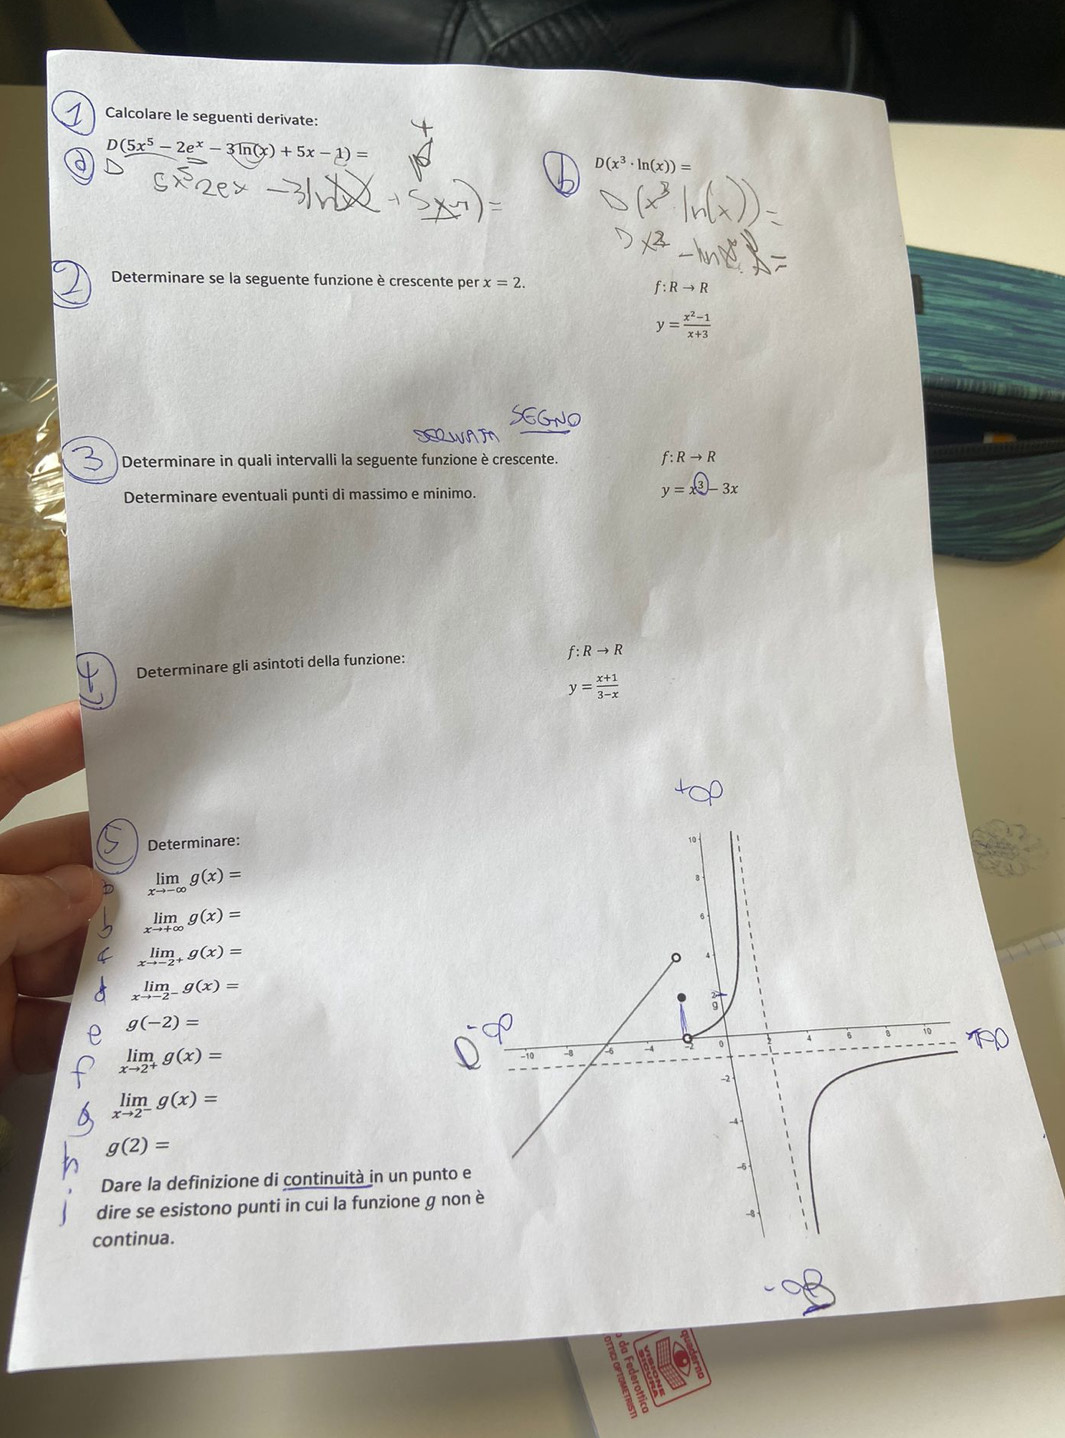 1 Calcolare le seguenti derivate:
a D(5x⁵ − 2eˣ − 3ln(x) + 5x − 1) =
b D(x³ · ln(x)) =
D(x³ ln(x)) =
2 Determinare se la seguente funzione è crescente per x = 2.
f: R → R
y = (x²−1)/(x+3)
DERIVATA SEGNO
3 Determinare in quali intervalli la seguente funzione è crescente.
f: R → R
Determinare eventuali punti di massimo e minimo.
y = x³ − 3x
4 Determinare gli asintoti della funzione:
f: R → R
y = (x+1)/(3−x)
5 Determinare:
lim x→−∞ g(x) =
b lim x→+∞ g(x) =
c lim x→−2⁺ g(x) =
d lim x→−2⁻ g(x) =
e g(−2) =
f lim x→2⁺ g(x) =
g lim x→2⁻ g(x) =
h g(2) =
i Dare la definizione di continuità in un punto e
dire se esistono punti in cui la funzione g non è
continua.
+∞
10
8
6
4
2
g
−∞
−10 −8 −6 −4 −2 0 2 4 6 8 10
+∞
−2
−4
−6
−8
−∞
quaderno
VISIONE
SICURA
da Federottica
OTTICI OPTOMETRISTI